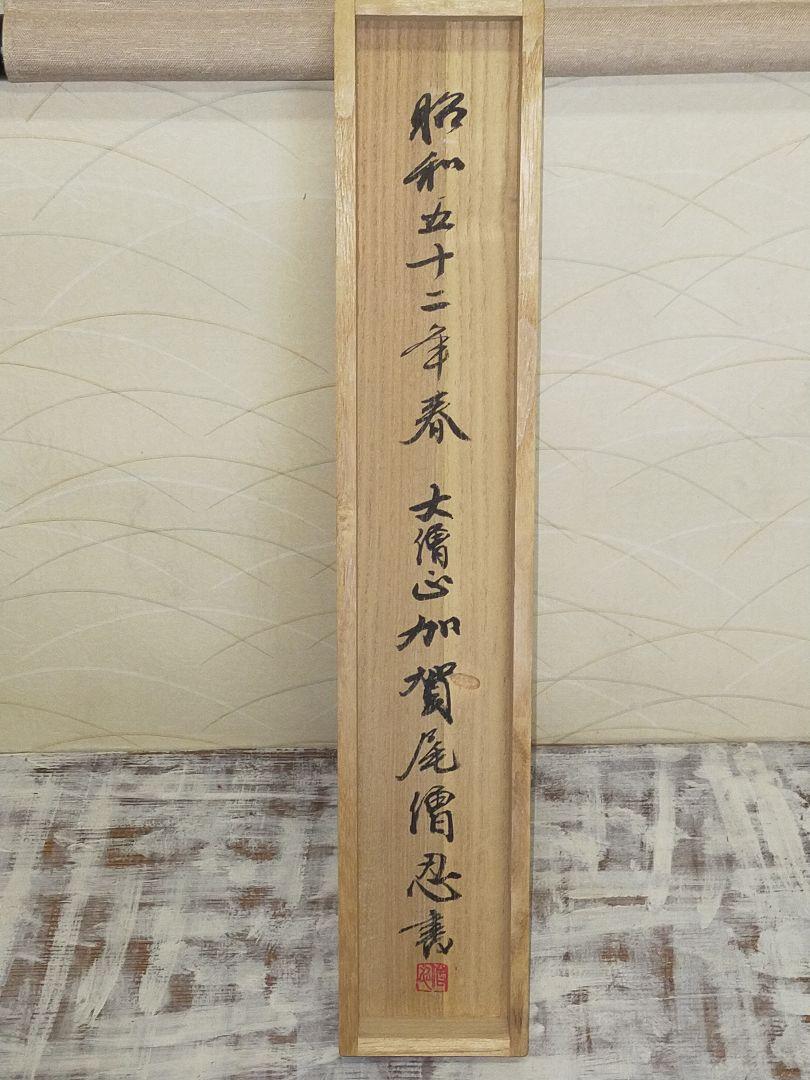 昭和五十二年春　大僧正加賀尾僧忍書